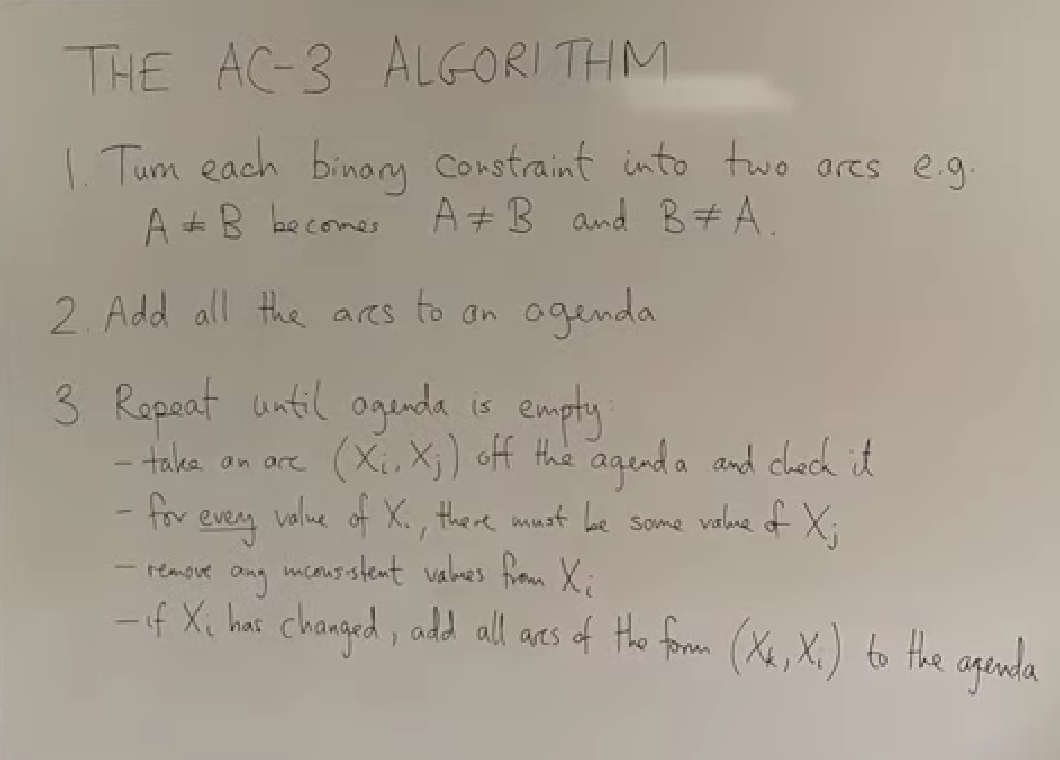 THE AC-3 ALGORITHM
1. Turn each binary constraint into two arcs e.g.
A ≠ B becomes A ≠ B and B ≠ A.
2. Add all the arcs to an agenda
3 Repeat until agenda is empty:
- take an arc (Xi, Xj) off the agenda and check it
- for every value of Xi, there must be some value of Xj
- remove any inconsistent values from Xi
- if Xi has changed, add all arcs of the form (Xk, Xi) to the agenda